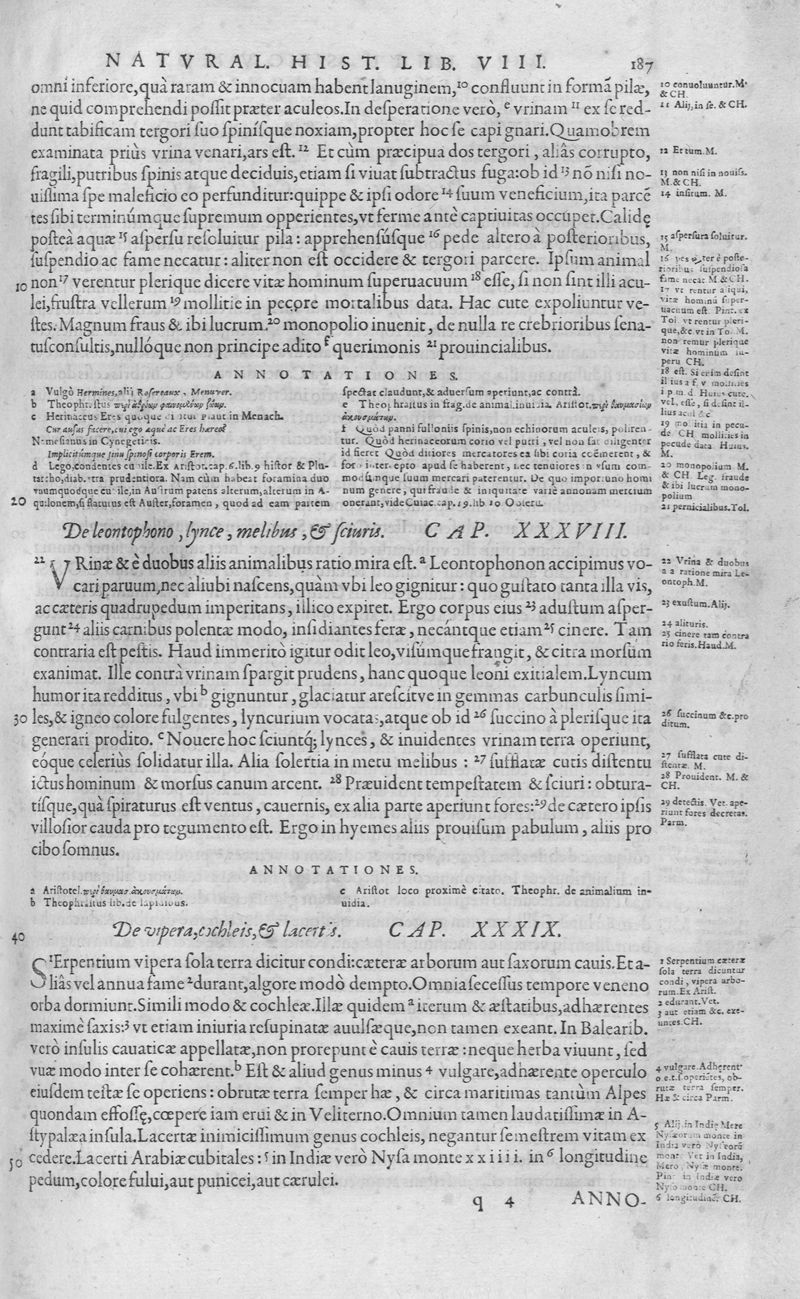 NATVRAL. HIST. LIB. VIII. 187
omni inferiore, quà raram & innocuam habent lanuginem,¹⁰ confluunt in formā pilæ,
ne quid comprehendi possit præter aculeos. In desperatione verò, ᵉ vrinam ¹¹ ex se red-
dunt tabificam tergori suo spinisque noxiam, propter hoc se capi gnari. Quamobrem
examinata priùs vrina venari, ars est. ¹² Et cùm præcipua dos tergori, aliâs corrupto,
fragili, putribus spinis atque deciduis, etiam si viuat subtractus fuga: ob id ¹³ nō nisi no-
uissima spe maleficio eo perfunditur: quippe & ipsi odore ¹⁴ suum veneficium, ita parcē
tes sibi terminúmque supremum opperientes, vt ferme antè captiuitas occupet. Calidę
posteà aquæ ¹⁵ aspersu resoluitur pila: apprehensúsque ¹⁶ pede altero à posterioribus,
suspendio ac fame necatur: aliter non est occidere & tergori parcere. Ipsum animal
10 non¹⁷ verentur plerique dicere vitæ hominum superuacuum ¹⁸ esse, si non sint illi acu-
lei, frustra vellerum ¹⁹ mollitie in pecore mortalibus data. Hac cute expoliuntur ve-
stes. Magnum fraus & ibi lucrum.²⁰ monopolio inuenit, de nulla re crebrioribus sena-
tusconsultis, nullóque non principe adito ᶠ querimonis ²¹ prouincialibus.
10 conuoluuntur. M.
& CH.
11 Alij, in se. & CH.
12 Et tum. M.
13 non nisi in nouiss.
M. & CH.
14 insitum. M.
15 aspersura soluitur.
M.
ANNOTATIONES.
a Vulgò Hermines, alij Rosereaux, Menuver.
Herinaceus Eres
Cur ausus facere, cui ego æquè ac Eres hæres?
Nemesianus in Cynegeticis.
Implicitúmque sinu spinosi corporis Erem.
d Lego, Condentes cubile. Ex Aristot. cap. 6. lib. 9 histor & Plu-
tarcho, diab. Nam cùm habeat foramina duo
20 quilonem, si flaturus est Auster, foramen, quod ad eam partem
spectat claudunt, & aduersum aperiunt, ac contrà.
f Quòd panni fulloniis spinis, non echinorum aculeis, poliren-
tur. Quòd herinaceorum corio vel putri, vel non sat diligenter
id fieret. Quòd ditiores mercatores ea sibi coria coëmerent, &
num genere, qui fraude & iniquitate variè annonam mercium
De leontophono, lynce, melibus, & sciuris. CAP. XXXVIII.
²² VRinæ & è duobus aliis animalibus ratio mira est. ᵃ Leontophonon accipimus vo-
cari paruum, nec aliubi nascens, quàm vbi leo gignitur: quo gustato tanta illa vis,
ac cæteris quadrupedum imperitans, illico expiret. Ergo corpus eius ²³ adustum asper-
gunt²⁴ aliis carnibus polentæ modo, insidiantes feræ, necántque etiam²⁵ cinere. Tam
contraria est pestis. Haud immeritò igitur odit leo, visúmque frangit, & citra morsum
exanimat. Ille contrà vrinam spargit prudens, hanc quoque leoni exitialem. Lyncum
humor ita redditus, vbi ᵇ gignuntur, glaciatur arescitve in gemmas carbunculis simi-
30 les, & igneo colore fulgentes, lyncurium vocatas, atque ob id ²⁶ succino à plerisque ita
generari prodito. ᶜ Nouere hoc sciuntq; lynces, & inuidentes vrinam terra operiunt,
eóque celeriùs solidatur illa. Alia solertia in metu melibus: ²⁷ sufflatæ cutis distentu
ictus hominum & morsus canum arcent. ²⁸ Præuident tempestatem & sciuri: obtura-
tisque, quà spiraturus est ventus, cauernis, ex alia parte aperiunt fores:²⁹ de cætero ipsis
villosior cauda pro tegumento est. Ergo in hyemes aliis prouisum pabulum, aliis pro
cibo somnus.
22 Vrina & duobus
a a ratione mira Le-
ontoph. M.
23 exustum. Alij.
24 alituris.
25 cinere tam contra
rio feris. Haud. M.
26 succinum &c. pro
ditum.
27 sufflata cute di-
stentæ. M.
28 Prouident. M. &
CH.
29 detectis. Vet. ape-
riunt fores decretas.
Parm.
ANNOTATIONES.
a Aristotel. περὶ θαυμασ. ἀκουσμάτωμ.
b Theophrastus lib. de lapidibus.
c Aristot loco proximè citato. Theophr. de animalium in-
uidia.
40 De vipera, cochleis, & lacertis. CAP. XXXIX.
SErpentium vipera sola terra dicitur condi: cæteræ arborum aut saxorum cauis. Et a-
liâs vel annua fame ²durant, algore modò dempto. Omnia secessus tempore veneno
orba dormiunt. Simili modo & cochleæ. Illæ quidem ᵃ iterum & æstatibus, adhærentes
maximè saxis:³ vt etiam iniuria resupinatæ auulsæque, non tamen exeant. In Balearib.
verò insulis cauaticæ appellatæ, non prorepunt è cauis terræ: neque herba viuunt, sed
vuæ modo inter se cohærent.ᵇ Est & aliud genus minus ⁴ vulgare, adhærente operculo
eiusdem testæ se operiens: obrutæ terra semper hæ, & circa maritimas tantùm Alpes
quondam effossę, cœpere iam erui & in Veliterno. Omnium tamen laudatissimæ in A-
stypalæa insula. Lacertæ inimicissimum genus cochleis, negantur semestrem vitam ex
50 cedere. Lacerti Arabiæ cubitales:⁵ in Indiæ verò Nysa monte xxiiii. in⁶ longitudine
pedum, colore fului, aut punicei, aut cærulei.
1 Serpentium cæteræ
sola terra dicuntur
condi, vipera arbo-
rum. Ex Arist.
2 edurant. Vet.
3 aut etiam &c. exe-
untes. CH.
6 longitudinē. CH.
q 4 ANNO-